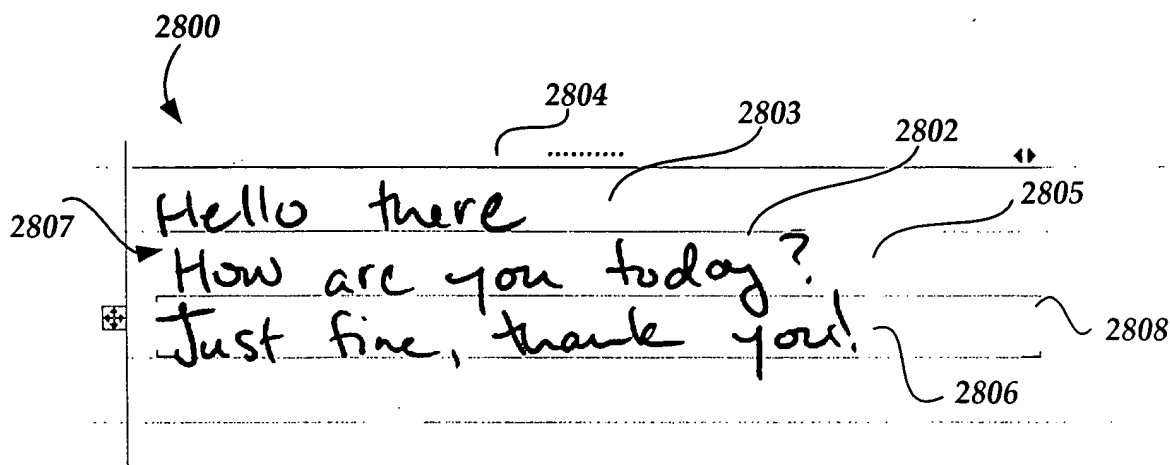 2800
2804
2803
2802
2805
Hello there
2807
How are you today?
Just fine, thank you!
2808
2806